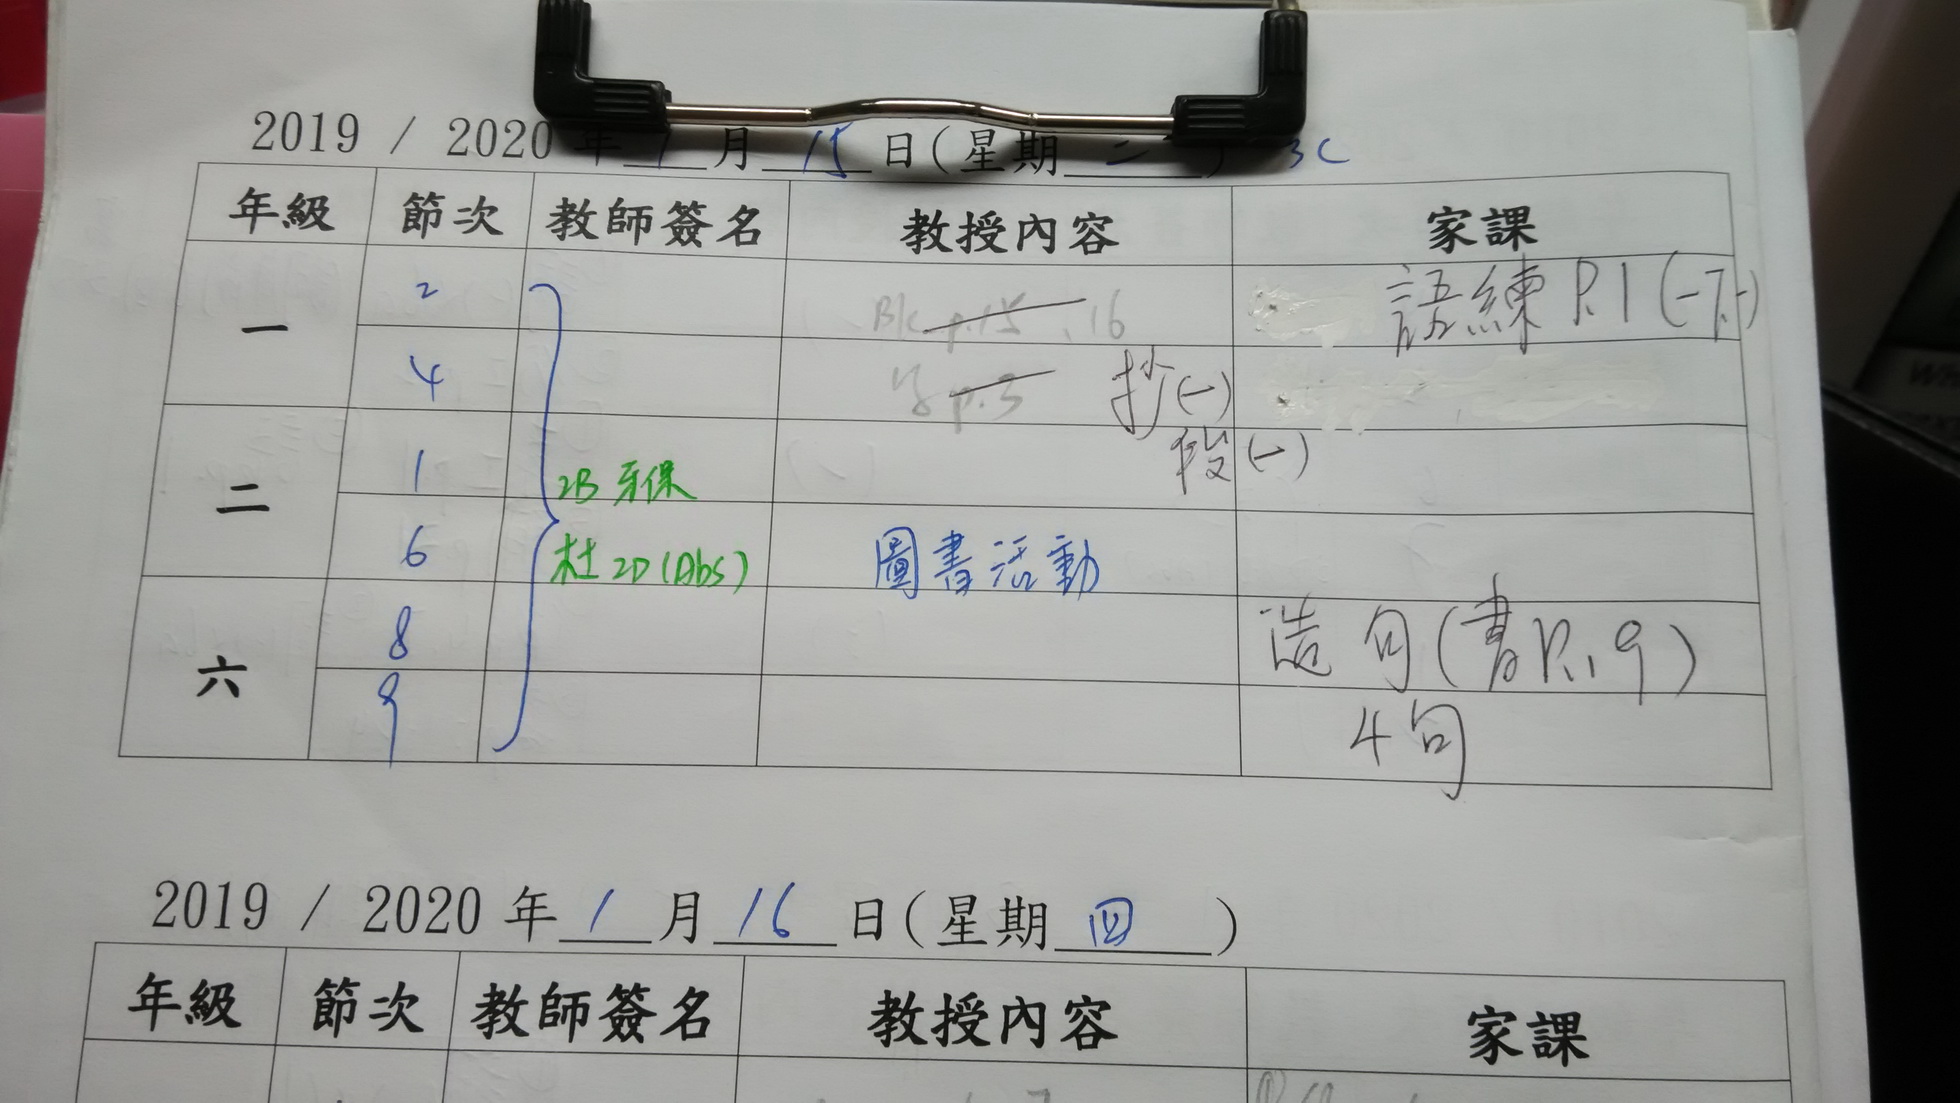 2019 / 2020 年 1 月 15 日(星期 ) 3C
年級 節次 教師簽名 教授內容 家課
一 2 Bk p.15 , 16 語練 P.1 (一
4 p.3 抄(一)
二 1 2B 牙保 投(一)
6 杜 2D (Abs) 圖書活動
六 8 造句(書P.19)
9 4句
2019 / 2020 年 1 月 16 日(星期 四 )
年級 節次 教師簽名 教授內容 家課